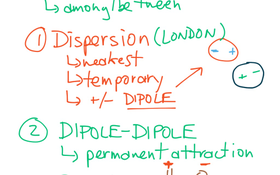 ↳ among/between
① Dispersion (LONDON)
↳ weakest
↳ temporary
↳ +/- DIPOLE
- +
+ -
② DIPOLE-DIPOLE
↳ permanent attraction
+